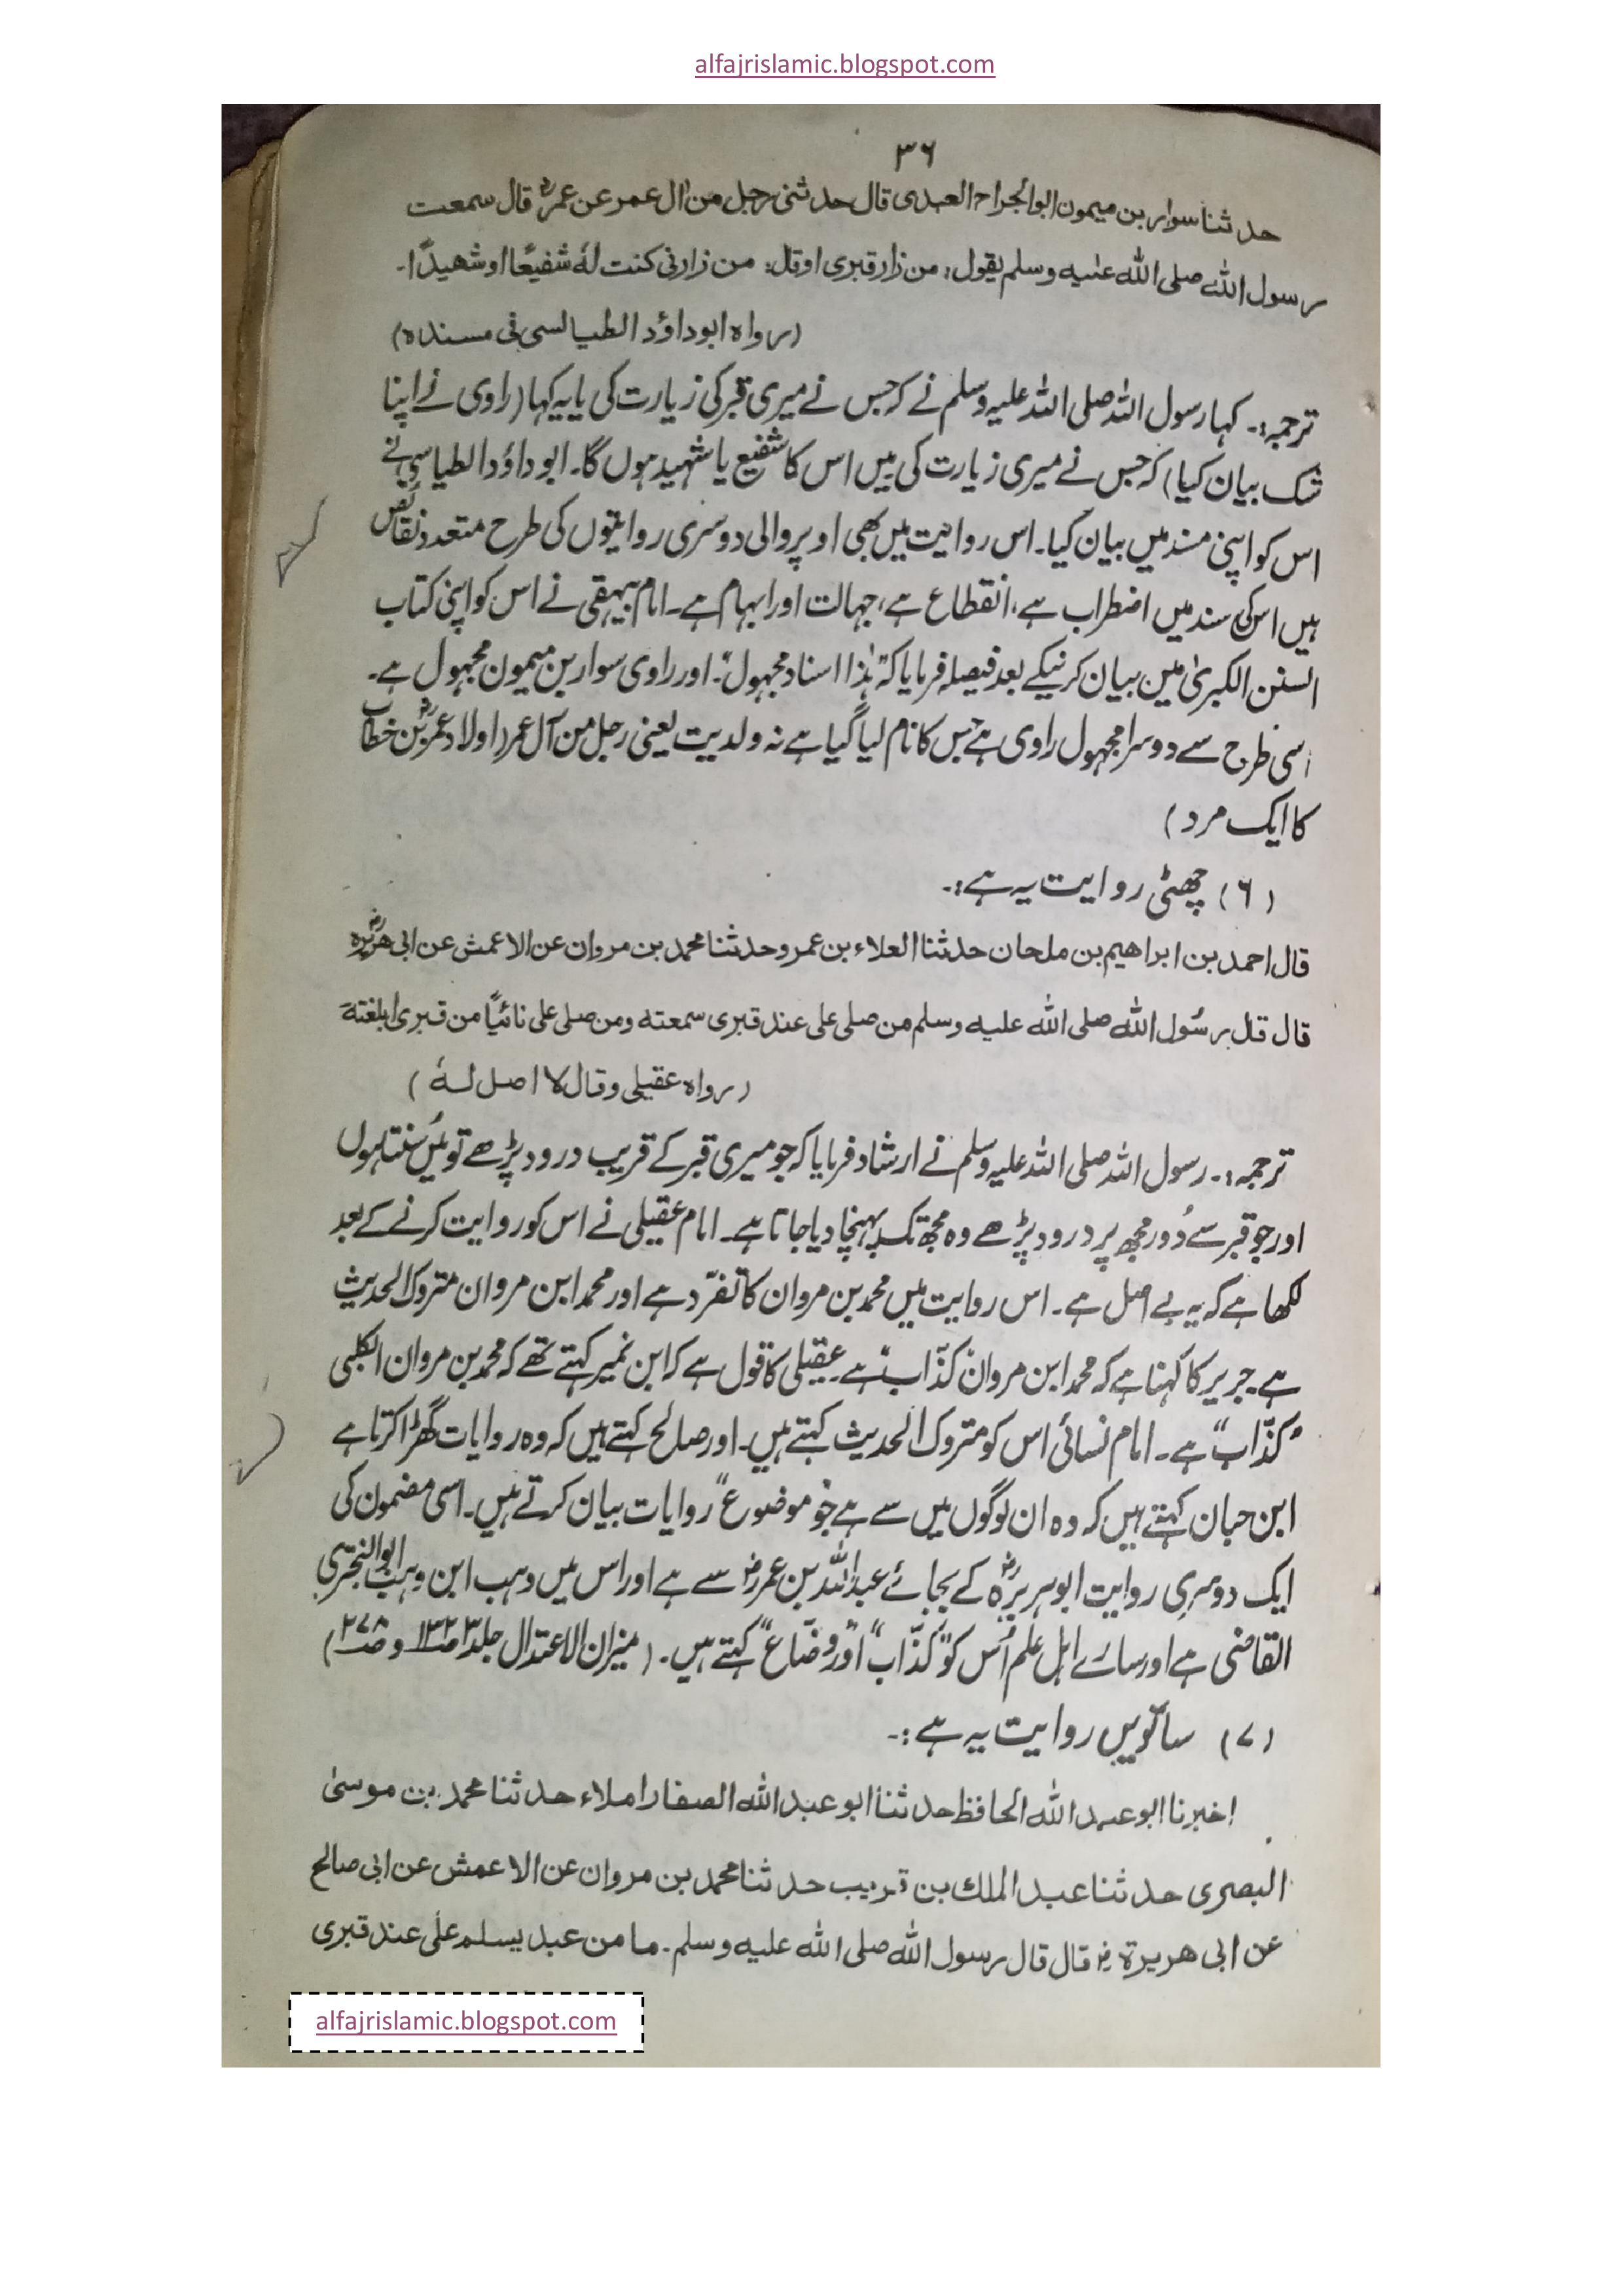 alfajrislamic.blogspot.com
۳۶
حدثنا سوار بن میمون ابو الجراح العبدی قال حدثنی رجل من ال عمر عن عمرؓ قال سمعت
رسول اللہ صلی اللہ علیہ وسلم یقول: من زار قبری او قل: من زارنی کنت لہٗ شفیعًا او شھیدًا۔
(رواہ ابوداؤد الطیالسی فی مسندہ)
ترجمہ:۔ کہا رسول اللہ صلی اللہ علیہ وسلم نے کہ جس نے میری قبر کی زیارت کی یا یہ کہا (راوی نے اپنا
شک بیان کیا) کہ جس نے میری زیارت کی میں اس کا شفیع یا شہید ہوں گا۔ ابوداؤد الطیاسی نے
اس کو اپنی مسند میں بیان کیا۔ اس روایت میں بھی اوپر والی دوسری روایتوں کی طرح متعدد نقائص
ہیں اس کی سند میں اضطراب ہے، انقطاع ہے، جہالت اور ابہام ہے۔ امام بیہقی نے اس کو اپنی کتاب
السنن الکبریٰ میں بیان کرنیکے بعد فیصلہ فرمایا کہ ”ہٰذا اسناد مجہول“۔ اور راوی سوار بن میمون مجہول ہے۔
اسی طرح سے دوسرا مجہول راوی ہے جس کا نام لیا گیا ہے نہ ولدیت یعنی رجل من آل عمر (اولاد عمرؓ بن خطاب
کا ایک مرد)
(۶) چھٹی روایت یہ ہے:۔
قال احمد بن ابراھیم بن ملحان حدثنا العلاء بن عمرو حدثنا محمد بن مروان عن الاعمش عن ابی ھریرہؓ
قال قل رسُول اللہ صلی اللہ علیہ وسلم من صلی علی عند قبری سمعتہ ومن صلی علی نائیًا من قبری ابلغتہ
(رواہ عقیلی وقال لا اصل لہٗ)
ترجمہ:۔ رسول اللہ صلی اللہ علیہ وسلم نے ارشاد فرمایا کہ جو میری قبر کے قریب درود پڑھے تو میں سُنتا ہوں
اور جو قبر سے دُور مجھ پر درود پڑھے وہ مجھ تک پہنچا دیا جاتا ہے۔ امام عقیلی نے اس کو روایت کرنے کے بعد
لکھا ہے کہ یہ بے اصل ہے۔ اس روایت میں محمد بن مروان کا تفرّد ہے اور محمد ابن مروان متروک الحدیث
ہے۔ جریر کا کہنا ہے کہ محمد ابن مروان ”کذّاب“ ہے۔ عقیلی کا قول ہے کہ ابن نمیر کہتے تھے کہ محمد بن مروان الکلبی
”کذّاب“ ہے۔ امام نسائی اس کو متروک الحدیث کہتے ہیں۔ اور صالح کہتے ہیں کہ وہ روایات گھڑا کرتا ہے
ابن حبان کہتے ہیں کہ وہ ان لوگوں میں سے ہے جو ”موضوع“ روایات بیان کرتے ہیں۔ اسی مضمون کی
ایک دوسری روایت ابوہریرہؓ کے بجائے عبداللہ بن عمرؓ سے ہے اور اس میں وہب ابن وہب ابوالبختری
القاضی ہے اور سارے اہل علم اُس کو ”کذّاب“ اور ”وضّاع“ کہتے ہیں۔ (میزان الاعتدال جلد ۳ صـ ۱۳۲ و صـ ۲۷۸)
(۷) ساتویں روایت یہ ہے:۔
اخبرنا ابو عبد اللہ الحافظ حدثنا ابو عبد اللہ الصفار املاء حدثنا محمد بن موسیٰ
البصری حدثنا عبد الملک بن قریب حدثنا محمد بن مروان عن الاعمش عن ابی صالح
عن ابی ھریرۃؓ قال قال رسول اللہ صلی اللہ علیہ وسلم۔ ما من عبد یسلم علی عند قبری
alfajrislamic.blogspot.com